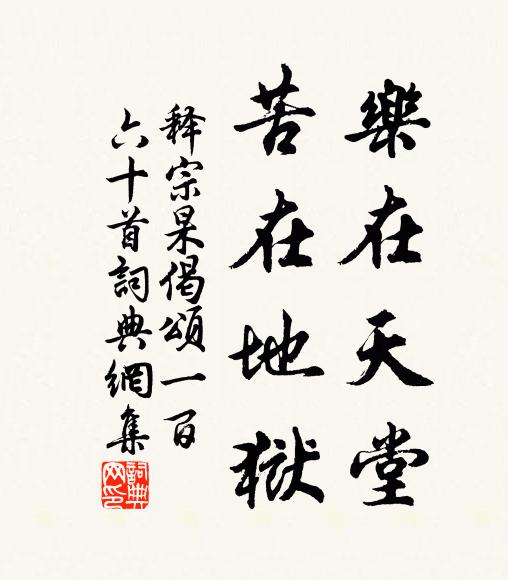 樂在天堂
苦在地獄
释宗杲偈頌一百
六十首詞典網集
詞典网印